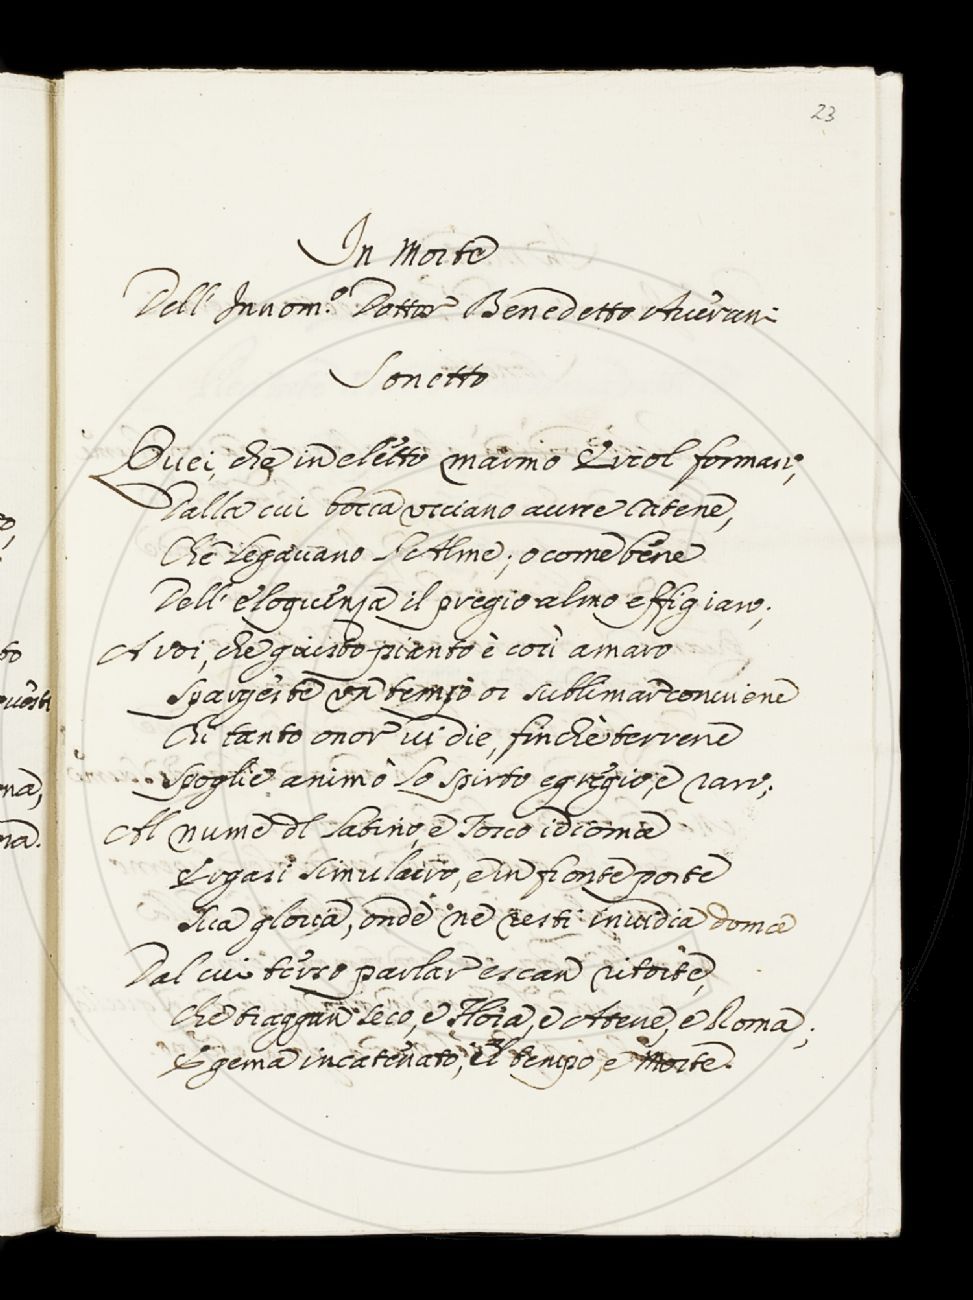 23
In Morte
Dell' Innom.º Dottor Benedetto Averani
Sonetto
Quei, che in eletto marmo Ercol formaro,
Dalla cui bocca usciano auree catene,
Che legavano l'Alme; o come bene
Dell' eloquenza il pregio almo effigiaro;
A voi, che questo pianto è così amaro
Spargeste un tempio or sublimar conviene
Chi tanto onor vi die, finchè terrene
Spoglie animò lo spirto egregio, e raro;
Al nume del latino, e Tosco idioma
Ergasi simulacro, e in fronte porte
Sua gloria, onde ne resti invidia doma
Dal cui terso parlar escan ritorte,
Che traggan seco, e Flora, e Atene, e Roma;
E gema incatenato, e'l tempo, e Morte.